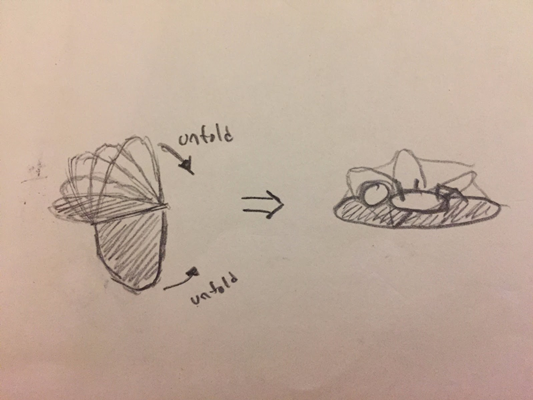 unfold
unfold